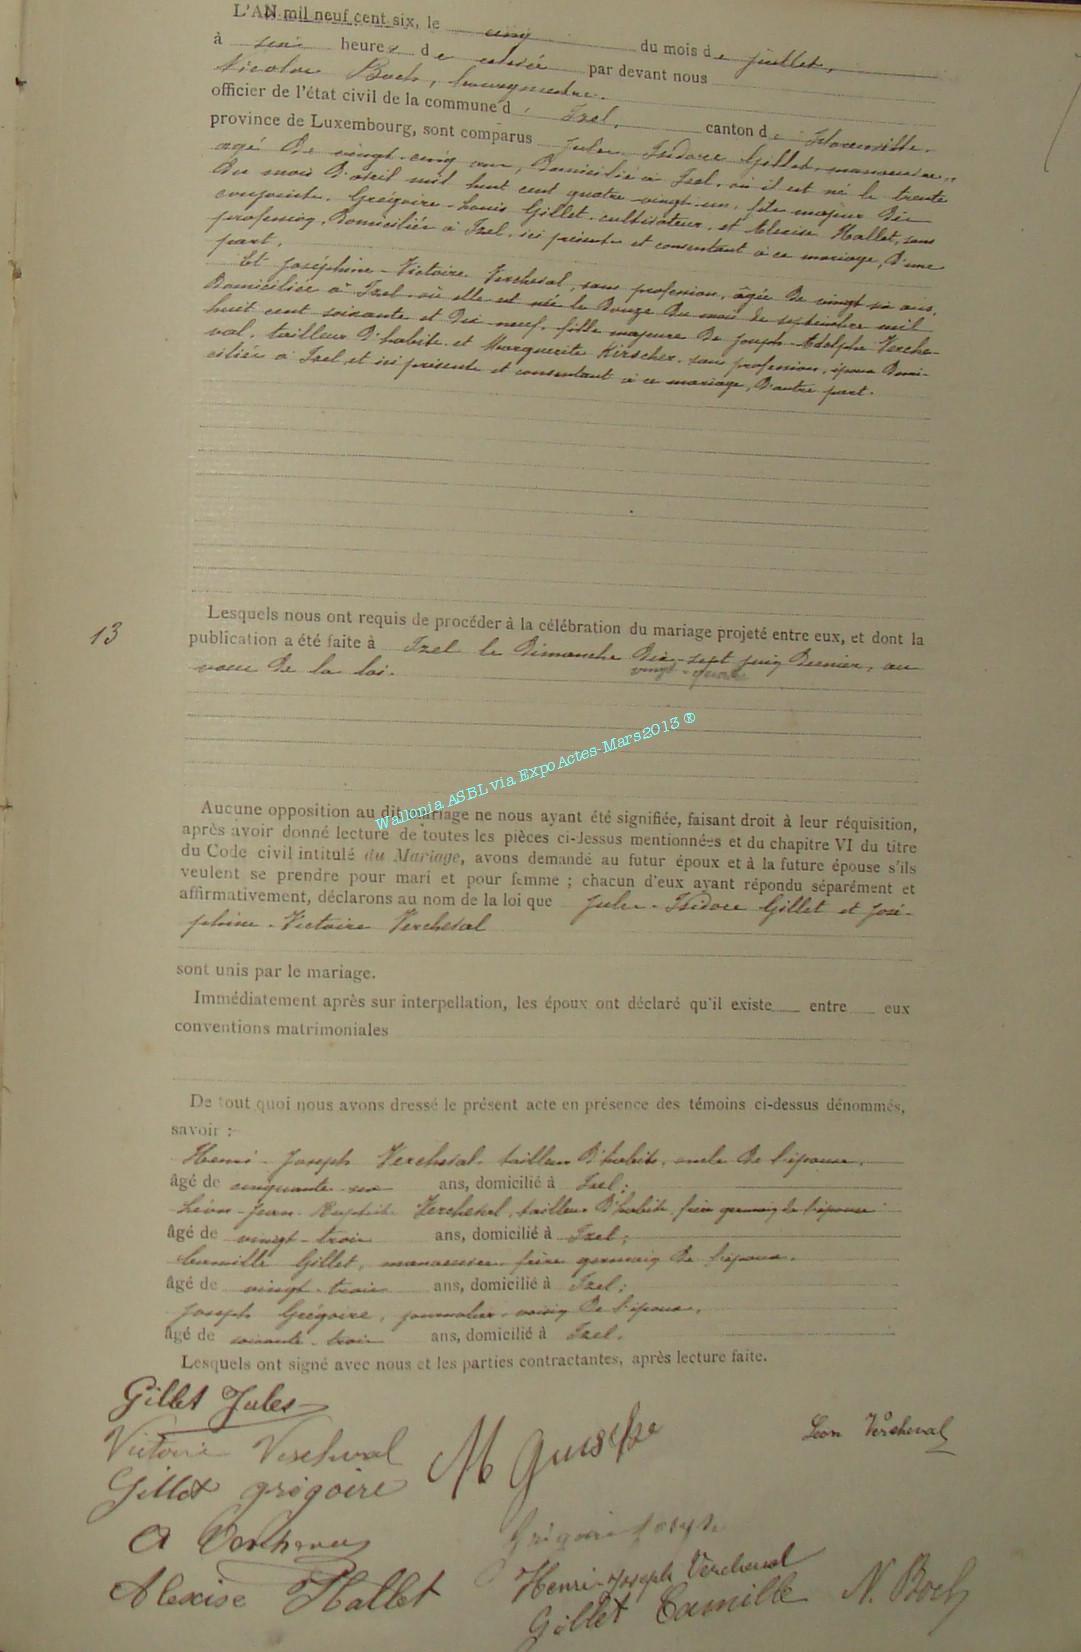 L'AN mil neuf cent six, le cinq du mois de juillet,
à six heures de relevée par devant nous
Nicolas Boch, bourgmestre.
officier de l'état civil de la commune d' Izel, canton de Florenville.
province de Luxembourg, sont comparus Jules Isidore Gillet, manoeuvre,
agé de vingt-cinq ans, domicilié à Izel, où il est né le trente
du mois d'avril mil huit cent quatre vingt-un, fils majeur des
conjoints Grégoire-Louis Gillet, cultivateur, et Alexise Hallet, sans
profession, domiciliés à Izel, ici présents et consentant à ce mariage, d'une
part,
Et Joséphine-Victoire Vercheval, sans profession, âgée de vingt six ans,
domiciliée à Izel, où elle est née le douze du mois de septembre mil
huit cent soixante et dix neuf, fille majeure de Joseph-Adolphe Verche-
val, tailleur d'habits et Marguerite Kirscher, sans profession, époux domi-
ciliés à Izel, et ici présents et consentant à ce mariage, d'autre part.
13
Lesquels nous ont requis de procéder à la célébration du mariage projeté entre eux, et dont la
publication a été faite à Izel le dimanche dix-sept juin dernier, au
voeu de la loi. vingt-quatre
Wallonia ASBL via ExpoActes-Mars2013 ®
Aucune opposition au dit mariage ne nous ayant été signifiée, faisant droit à leur réquisition,
après avoir donné lecture de toutes les pièces ci-dessus mentionnées et du chapitre VI du titre
du Code civil intitulé du Mariage, avons demandé au futur époux et à la future épouse s'ils
veulent se prendre pour mari et pour femme ; chacun d'eux ayant répondu séparément et
affirmativement, déclarons au nom de la loi que Jules-Isidore Gillet et José-
phine-Victoire Vercheval
sont unis par le mariage.
Immédiatement après sur interpellation, les époux ont déclaré qu'il existe entre eux
conventions matrimoniales
De tout quoi nous avons dressé le présent acte en présence des témoins ci-dessus dénommés,
savoir :
Henri-Joseph Vercheval, tailleur d'habits, oncle de l'épouse,
âgé de cinquante-six ans, domicilié à Izel;
Léon-Jean-Baptiste Vercheval, tailleur d'habits, frère germain de l'épouse
âgé de vingt-trois ans, domicilié à Izel;
Camille Gillet, manoeuvre, frère germain de l'époux,
âgé de vingt-trois ans, domicilié à Izel;
Joseph Grégoire, journalier, voisin de l'époux,
âgé de soixante-trois ans, domicilié à Izel.
Lesquels ont signé avec nous et les parties contractantes, après lecture faite.
Gillet Jules
Victoire Vercheval
Léon Vercheval
Gillet grégoire
Grégoire Joseph
Henri-Joseph Vercheval
Alexise Hallet
Gillet Camille
N. Boch